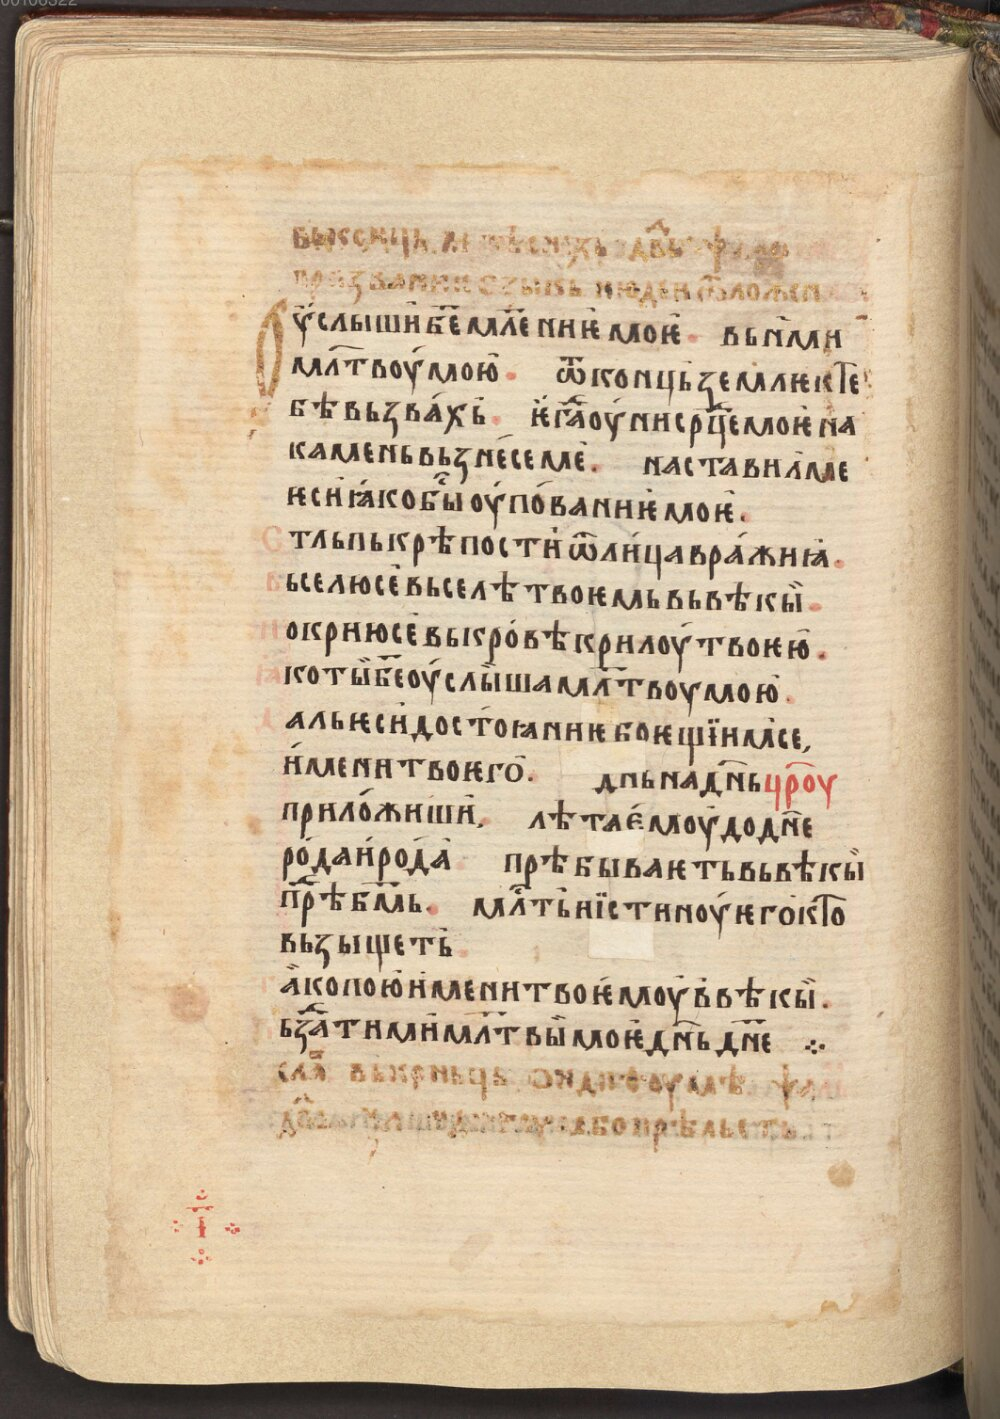 оуслышибе҃мл҃ениѥмоѥ. вьнми
мл҃твоумою. ѿконцьземлѥктє
бѣвьзвахь. ѥгд҃аоунисрц҃емоѥна
каменьвьзнесеме. наставилме
ѥсиꙗкобꙑоупованиѥмоѥ.
стльпькрѣпостиѿлицавражиꙗ.
вьселюсевьселѣтвоѥмьвьвѣкꙑ.
покриюсевькровѣкрилоутвоѥю.
ꙗкотꙑбж҃еоуслꙑшамл҃твоумою.
дальѥсидостоꙗниѥбоѥщїимсе,
именитвоѥго. дньнадн҃ьцр҃оу
приложиши. лѣтаемоудодн҃е
родаирода прѣбываѥтьвьвѣкꙑ
прⷣѣбм҃ь. млⷭ҇тьиїстиноуѥгокто
вьзыщеть.
такопоюименитвоѥмоуввѣкꙑ.
вьздⷶтимимл҃твꙑмоѥдн҃ьдн҃е
слⷡ҇а вьконьць
І